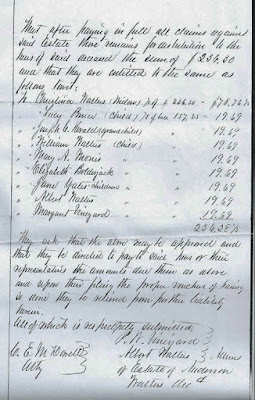 That after paying in full all claims against
said estate there remains for distribution to the
heirs of said deceased the sum of $236.30
and that they are entitled to the same as
follows to wit:
To Wallis (Widow) 1/3 of $ 236.30 - $78.76 2/3
" Lucy Bruce (Child) 1/8 of bal 157.53 - 19.69
" Joseph C. (child) " 19.69
" William Wallis (Child) " 19.69
" Mary A. Monis " 19.69
" Elizabeth " 19.69
" Jane Yales " 19.69
" Albert Wallis " 19.69
" Margaret Vineyard " 19.69
They ask that the above may be approved and
that they be directed to pay to said heirs or their
representatives the amounts due them as above
and upon their filing the proper vouchers of having
so done they be released from further liability
herein.
All of which is respectfully submitted
P. W. Vineyard
Albert Wallis } Admrs
C. E. M.
Atty
of Estate of Anderson
Wallis Decd